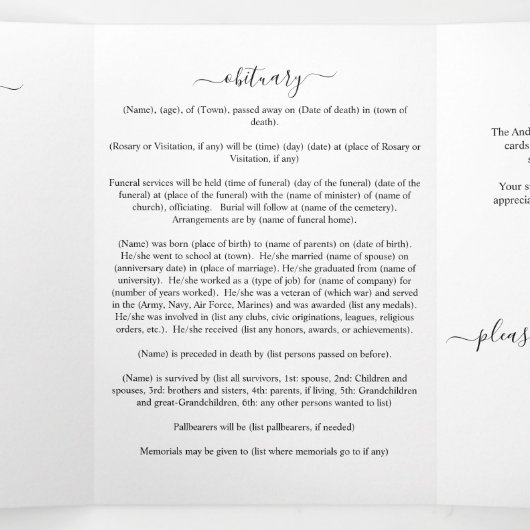 obituary
(Name), (age), of (Town), passed away on (Date of death) in (town of
death).
(Rosary or Visitation, if any) will be (time) (day) (date) at (place of Rosary or
Visitation, if any)
Funeral services will be held (time of funeral) (day of the funeral) (date of the
funeral) at (place of the funeral) with the (name of minister) of (name of
church), officiating. Burial will follow at (name of the cemetery).
Arrangements are by (name of funeral home).
(Name) was born (place of birth) to (name of parents) on (date of birth).
He/she went to school at (town). He/she married (name of spouse) on
(anniversary date) in (place of marriage). He/she graduated from (name of
university). He/she worked as a (type of job) for (name of company) for
(number of years worked). He/she was a veteran of (which war) and served
in the (Army, Navy, Air Force, Marines) and was awarded (list any medals).
He/she was involved in (list any clubs, civic originations, leagues, religious
orders, etc.). He/she received (list any honors, awards, or achievements).
(Name) is preceded in death by (list persons passed on before).
(Name) is survived by (list all survivors, 1st: spouse, 2nd: Children and
spouses, 3rd: brothers and sisters, 4th: parents, if living, 5th: Grandchildren
and great-Grandchildren, 6th: any other persons wanted to list)
Pallbearers will be (list pallbearers, if needed)
Memorials may be given to (list where memorials go to if any)
The And
cards
s
Your s
apprecia
pleas